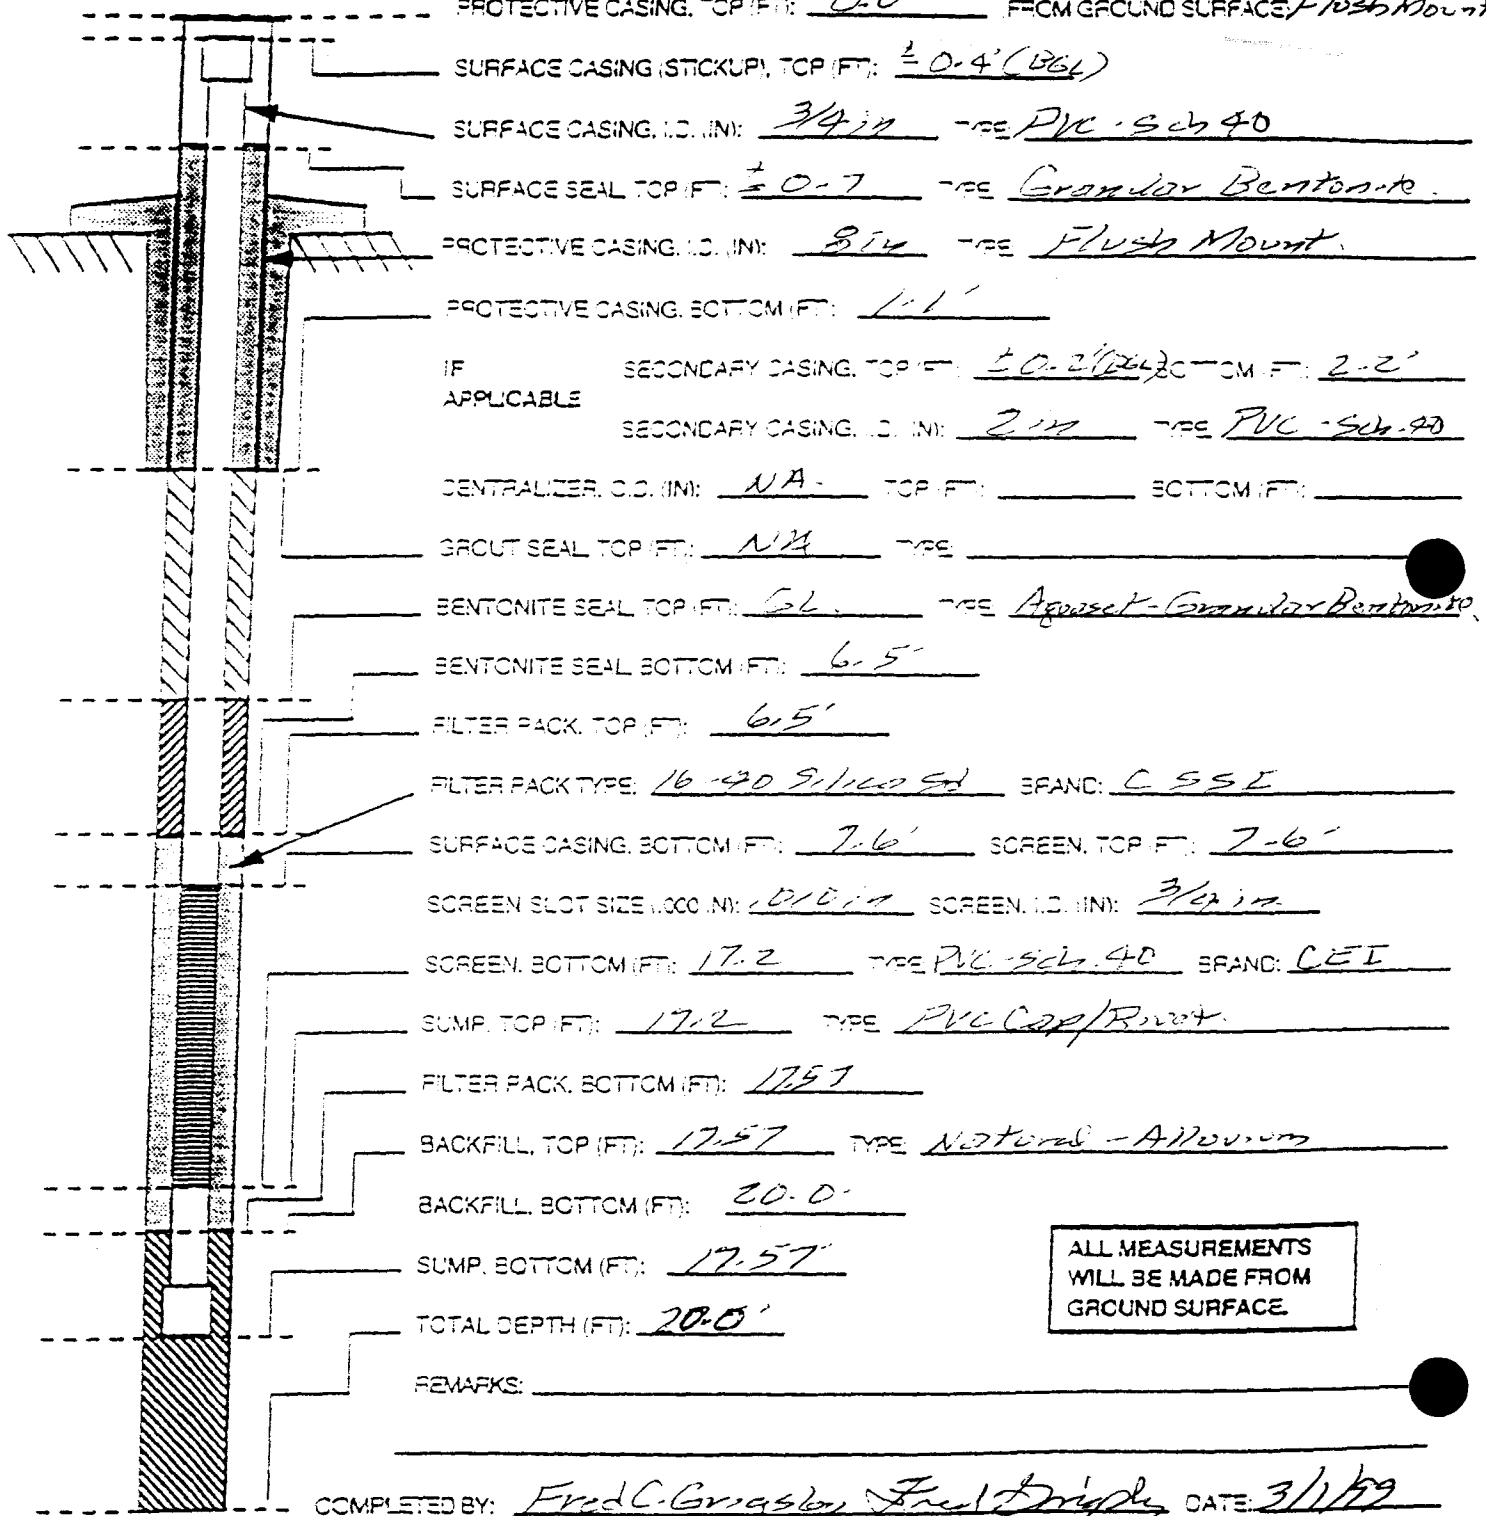 PROTECTIVE CASING, TOP (FT): 0.0 FROM GROUND SURFACE Flush Mount
SURFACE CASING (STICKUP), TOP (FT): ± 0.4' (BGL)
SURFACE CASING, I.D. (IN): 3/4 in TYPE PVC - Sch 40
SURFACE SEAL TOP (FT): ± 0.7 TYPE Granular Bentonite.
PROTECTIVE CASING, I.D. (IN): 8 in TYPE Flush Mount.
PROTECTIVE CASING, BOTTOM (FT): 1.1'
IF APPLICABLE
SECONDARY CASING, TOP (FT): ± 0.2' (BGL) BOTTOM (FT): 2.2'
SECONDARY CASING, I.D. (IN): 2 in TYPE PVC - Sch. 40
CENTRALIZER, O.D. (IN): NA. TOP (FT): BOTTOM (FT):
GROUT SEAL TOP (FT): NA TYPE:
BENTONITE SEAL TOP (FT): GL. TYPE Aquaset - Granular Bentonite.
BENTONITE SEAL BOTTOM (FT): 6.5'
FILTER PACK, TOP (FT): 6.5'
FILTER PACK TYPE: 16-40 Silica Sd BRAND: CSSI
SURFACE CASING, BOTTOM (FT): 7.6' SCREEN, TOP (FT): 7.6'
SCREEN SLOT SIZE (.000 IN): .010 in SCREEN, I.D. (IN): 3/4 in.
SCREEN, BOTTOM (FT): 17.2 TYPE PVC - Sch. 40 BRAND: CEI
SUMP, TOP (FT): 17.2 TYPE PVC Cap/
FILTER PACK, BOTTOM (FT): 17.57
BACKFILL, TOP (FT): 17.57 TYPE Natural - Alluvium
BACKFILL, BOTTOM (FT): 20.0'
SUMP, BOTTOM (FT): 17.57'
TOTAL DEPTH (FT): 20.0'
ALL MEASUREMENTS
WILL BE MADE FROM
GROUND SURFACE.
REMARKS:
COMPLETED BY: Fred C. DATE: 3/1/99